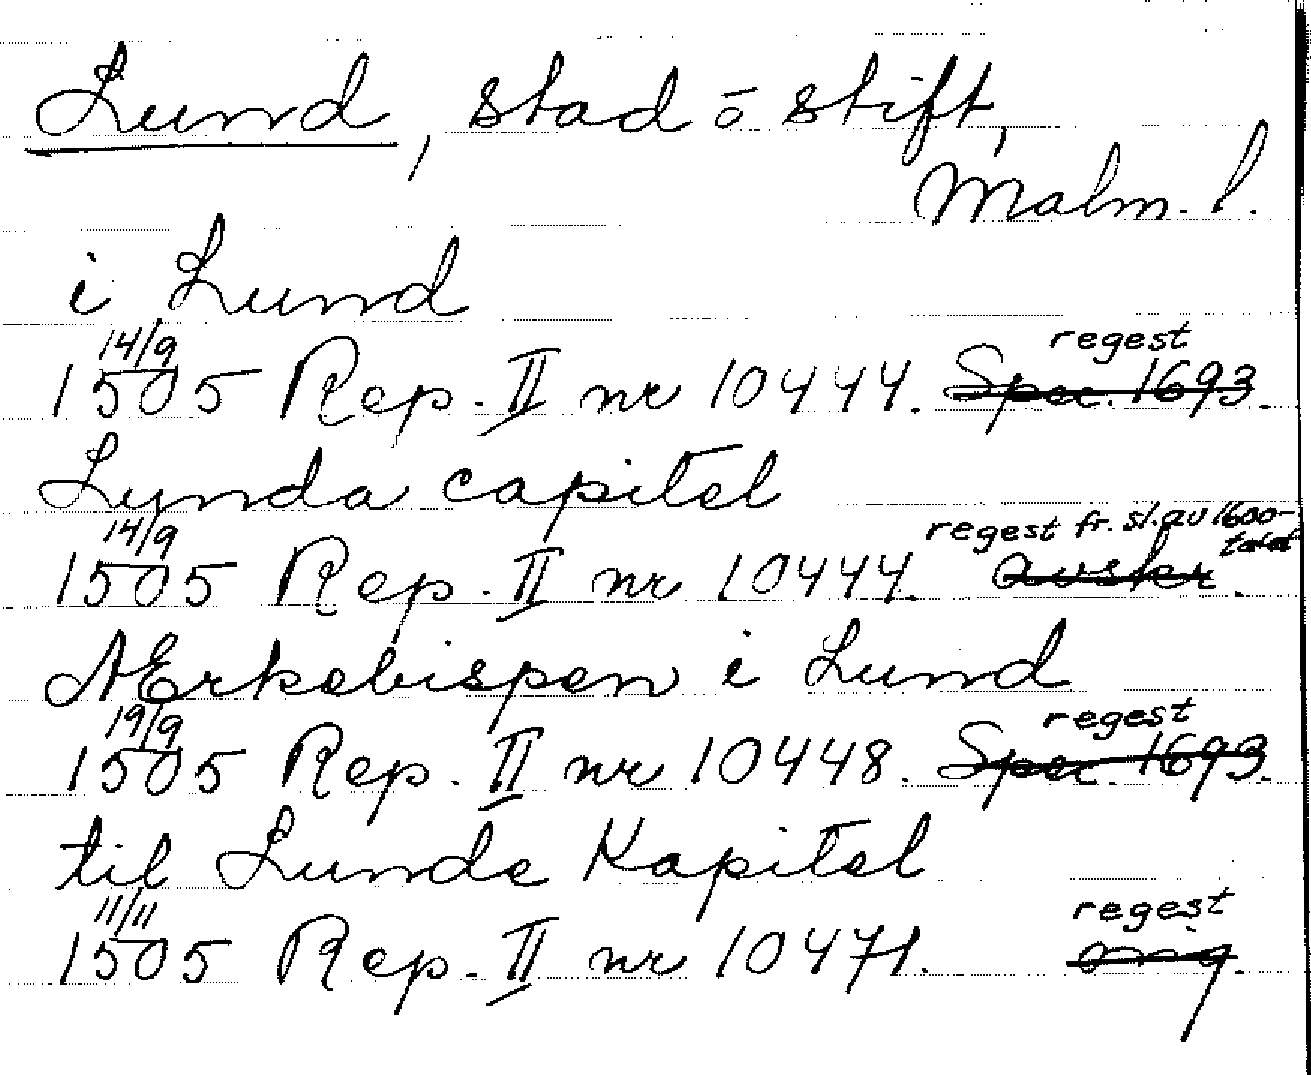 Lund, stad o stift,
Malm. l.
i Lund
14/9
1505 Rep. II nr 10444. Spec. 1693. regest
Lynda capitel
14/9
1505 Rep. II nr 10444. avskr. regest fr. sl. av 1600-talet
AErkebispen i Lund
19/9
1505 Rep. II nr 10448. Spec. 1693. regest
til Lunde Kapitel
11/11
1505 Rep. II nr 10471. orig. regest